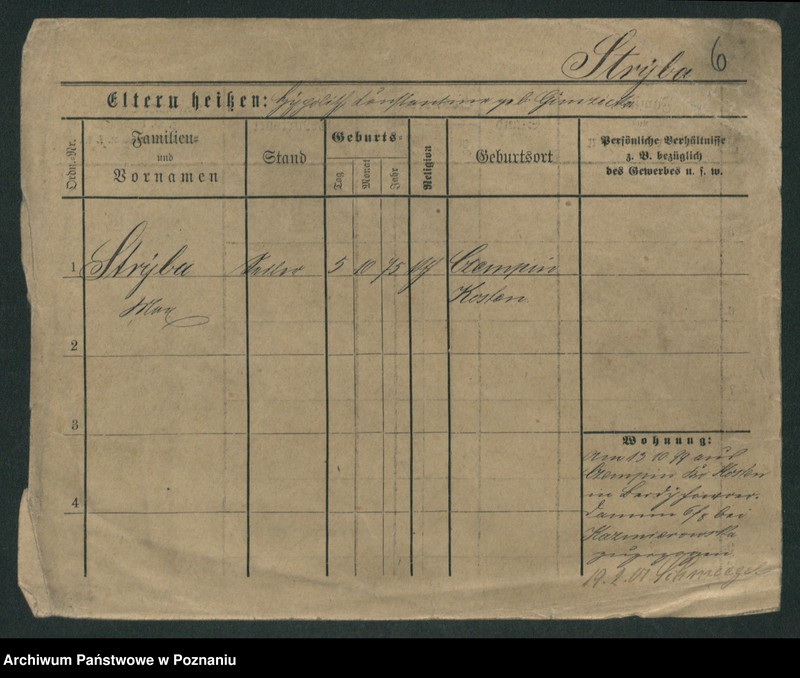 Strÿba 6
Eltern heißen: Hÿpolith Constantine geb
Ordn.-Nr.
Familien-
und
Vornamen
Stand
Geburts-
Tag
Monat
Jahr
Religion
Geburtsort
Persönliche Verhältnisse
z. B. bezüglich
des Gewerbes u. s. w.
1 Strÿba 5 10 75 Czempin
Max Kosten
2
3
4
Wohnung:
Am 13 10 99 aus
Czempin Kr Kosten
in
bei
Kazmierowska
zugezogen.
19. 2. 01. Schmiegel
Archiwum Państwowe w Poznaniu